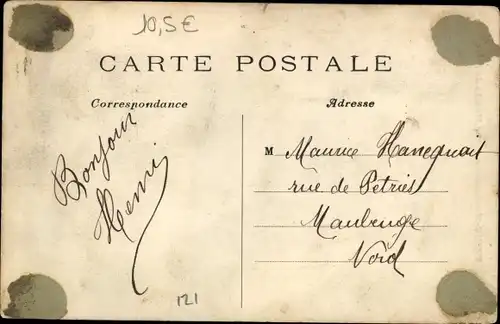 10,5€
CARTE POSTALE
Correspondance
Adresse
Bonjour
Henri
M Maurice
rue de
Maubeuge
Nord
121